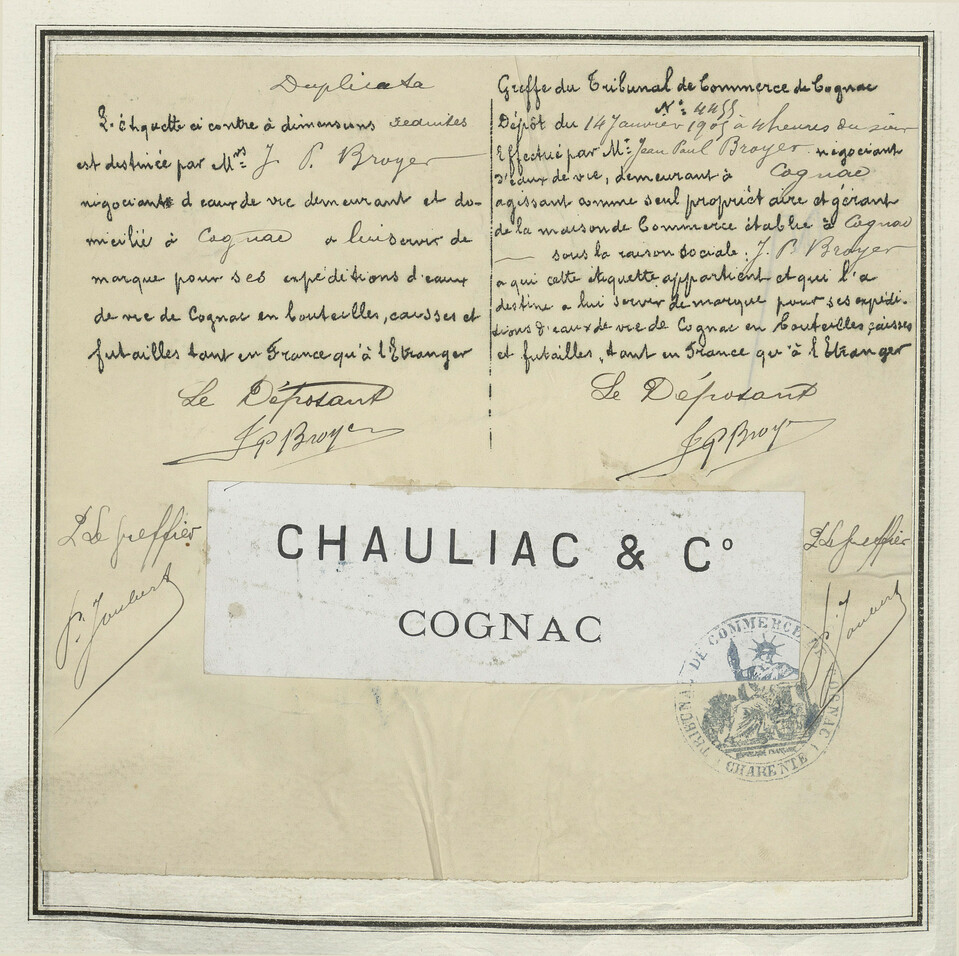 Duplicata
L'étiquette ci contre à dimensions réduites
est destinée par Mrs J. P. Broyer
négociants d'eaux de vie demeurant et do-
micilié à Cognac a lui servir de
marque pour ses expéditions d'eaux
de vie de Cognac en bouteilles, caisses et
futailles tant en France qu'à l'Etranger
Le Déposant
JPBroyer
Greffe du Tribunal de Commerce de Cognac
No: 4455
Dépôt du 14 Janvier 1905 à 4 heures du soir
Effectué par Mr. Jean Paul Broyer négociant
d'eaux de vie, demeurant à Cognac
agissant comme seul propriétaire et gérant
de la maison de Commerce établie à Cognac
sous la raison sociale: J. P. Broyer
a qui cette étiquette appartient et qui l'a
destine a lui servir de marque pour ses expédi-
tions d'eaux de vie de Cognac en bouteilles caisses
et futailles, tant en France qu'à l'Etranger
Le Déposant
JPBroyer
Le greffier
P. Joubert
CHAULIAC & Co
COGNAC
Le greffier
P. Joubert
TRIBUNAL DE COMMERCE DE COGNAC
CHARENTE